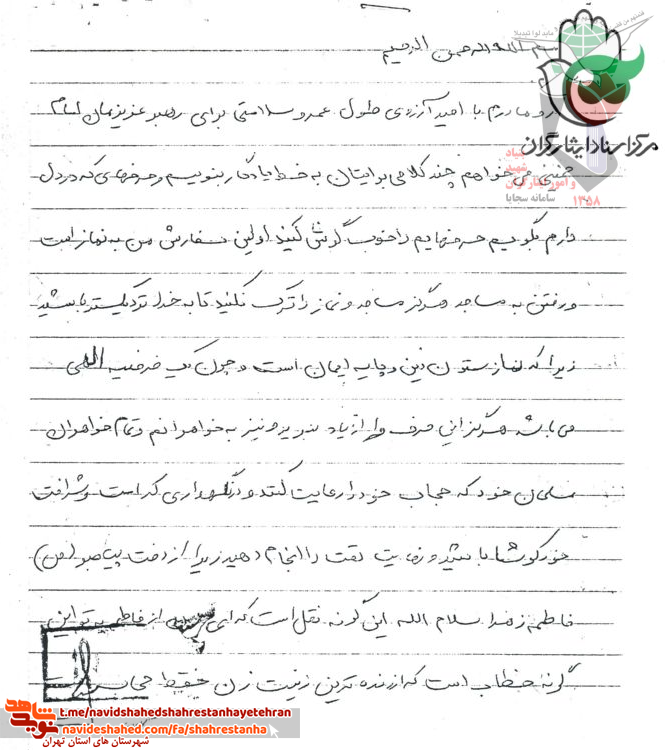 بسم الله الرحمن الرحیم
مرکز اسناد ایثارگران
بنیاد
شهید
و امور ایثارگران
سامانه سجایا
۱۳۵۸
و مادرم با امید آرزوی طول عمر و سلامتی برای رهبر عزیزمان امام
خمینی می خواهم چند کلامی برایتان به خط یادگار بنویسم و حرفهای که در دل
دارم بگویم حرفهایم را خوب گوش کنید اولین سفارش من به نماز است
و رفتن به مساجد هرگز مساجد و نماز را ترک نکنید تا به خدا نزدیکتر باشید
زیرا که نماز ستون دین و پایه ایمان است و چون یک فرضیه الهی
می باشد هرگز این حرف را از یاد نبرید و نیز به خواهرانم و تمام خواهران
مسلمان خود که حجاب خود را رعایت کنند و در نگهداری کرامت و شرافت
خود کوشا باشید و رعایت عفت را انجام دهید زیرا از دخت پیامبر (ص)
فاطمه زهرا سلام الله این گونه نقل است که ای از فاطمه به تو این
گونه خطاب است که ارزنده ترین زینت زن حفظ حجاب
نوید شاهد
t.me/navidshahedshahrestanhayetehran
navideshahed.com/fa/shahrestanha
شهرستان های استان تهران